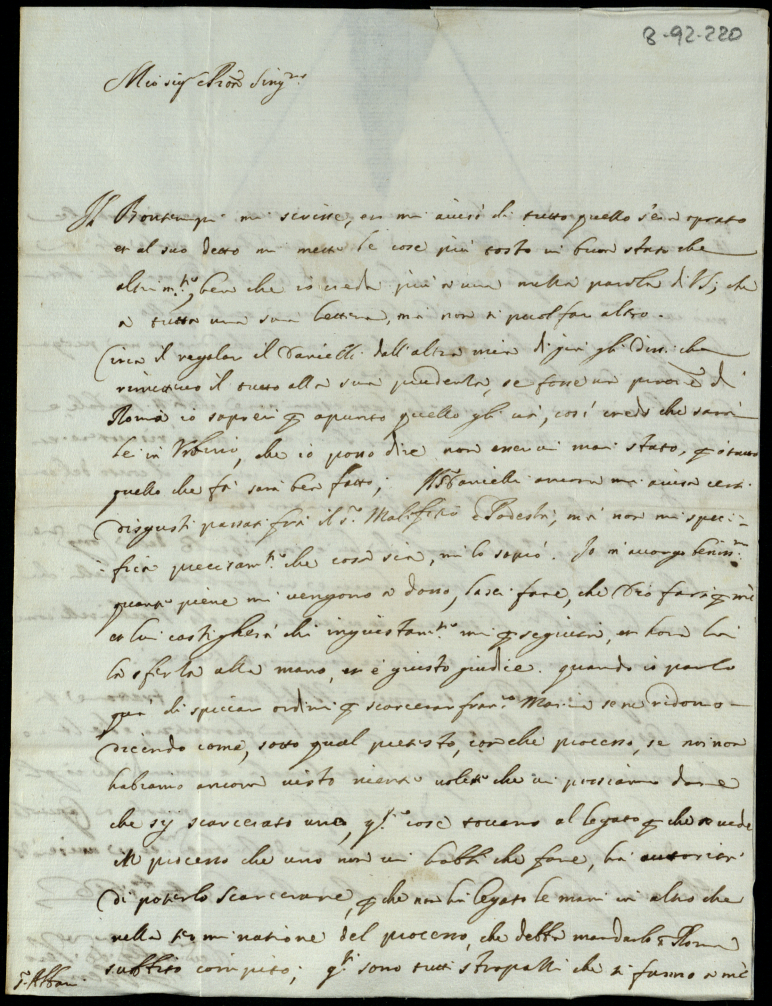 8-92-220
Mio sig.r e Pron. Sing.mo
Il Bontempi mi scrisse, et mi avisò di tutto quello s'era oprato
et al suo detto mi mette le cose più tosto in buon stato che
altrim.te, ben che io creda più a una meza parola di VS, che
a tutta una sua lettera, ma non si puol far altro.
Circa il regalar il Danielli dall'altra mia di già gli dissi che
rimettevo il tutto alla sua prudenza, se fosse un di
Roma io saprei p apunto quello gli , così credo che sarà
Le in Urbino, che io posso dire non esservi mai stato, p
quello che fa sarà ben fatto; Il S.r Danielli ancora mi avisa certi
disgusti passati frà il S.r Malfetti e Podestà, mà non mi speci=
=fica precisam.te che cosa sia, mi lo sapió. Io m'accorgo beniss.mo
quante piene mi vengono a dosso, lasci fare, che Dio farà p mè
et lui castigherà chi ingiustam.te mi p seguita, et hora hà
la sferla alla mano, et è giusto giudice. quando io parlo
quà di spiccar ordini p scarcerar fran.co Maria se ne ridono
dicendo come, sotto qual pretesto, con che processo, se noi non
habbiamo ancora visto niente volete che vi possiamo dare
che sij scarcerato uno, q.te cose toccano al legato p che se vede
il processo che uno non vi habbi che fare, hà autorità
di poterlo scarcerare, p che non hà legato le mani in altro che
nella terminatione del processo, che debba mandarlo a Roma
subbito compito; q.ti sono tutti strapalli che si fanno a mè